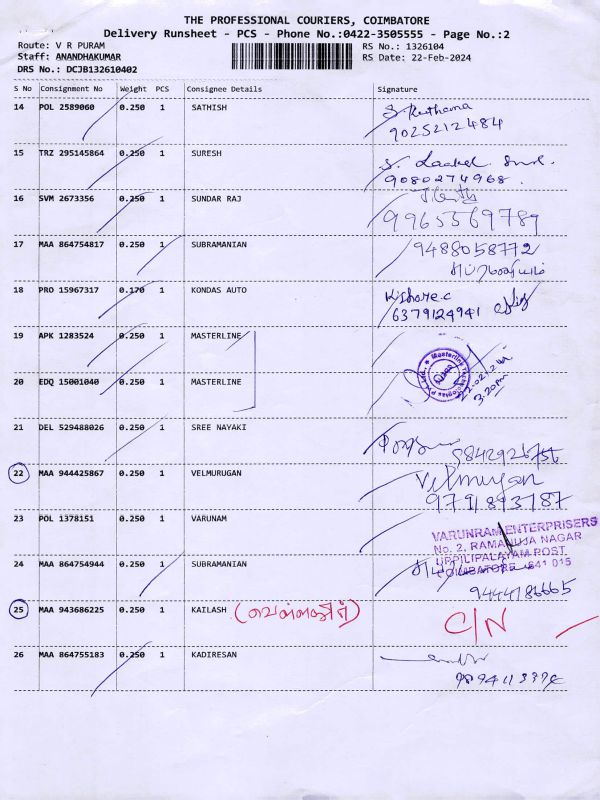 THE PROFESSIONAL COURIERS, COIMBATORE
Delivery Runsheet - PCS - Phone No.:0422-3505555 - Page No.:2
Route: V R PURAM
Staff: ANANDHAKUMAR
DRS No.: DCJB132610402
RS No.: 1326104
RS Date: 22-Feb-2024
S No Consignment No Weight PCS Consignee Details Signature
14 POL 2589060 0.250 1 SATHISH
9025212484
15 TRZ 295145864 0.250 1 SURESH
9080274968.
16 SVM 2673356 0.250 1 SUNDAR RAJ
9965569789
17 MAA 864754817 0.250 1 SUBRAMANIAN 9488058772
சுப்ரமணியம்
18 PRO 15967317 0.170 1 KONDAS AUTO Kishore.c
6379124941
19 APK 1283524 0.250 1 MASTERLINE
20 EDQ 15001040 0.250 1 MASTERLINE
22.02.24
3.20pm
21 DEL 529488026 0.250 1 SREE NAYAKI
9842926756
22 MAA 944425867 0.250 1 VELMURUGAN Velmurugan
9791893787
23 POL 1378151 0.250 1 VARUNAM
VARUNRAM ENTERPRISERS
No. 2, RAMANUJA NAGAR
UPPILIPALAYAM POST
COIMBATORE - 641 015
24 MAA 864754944 0.250 1 SUBRAMANIAN
9444186665
25 MAA 943686225 0.250 1 KAILASH C/N
26 MAA 864755183 0.250 1 KADIRESAN